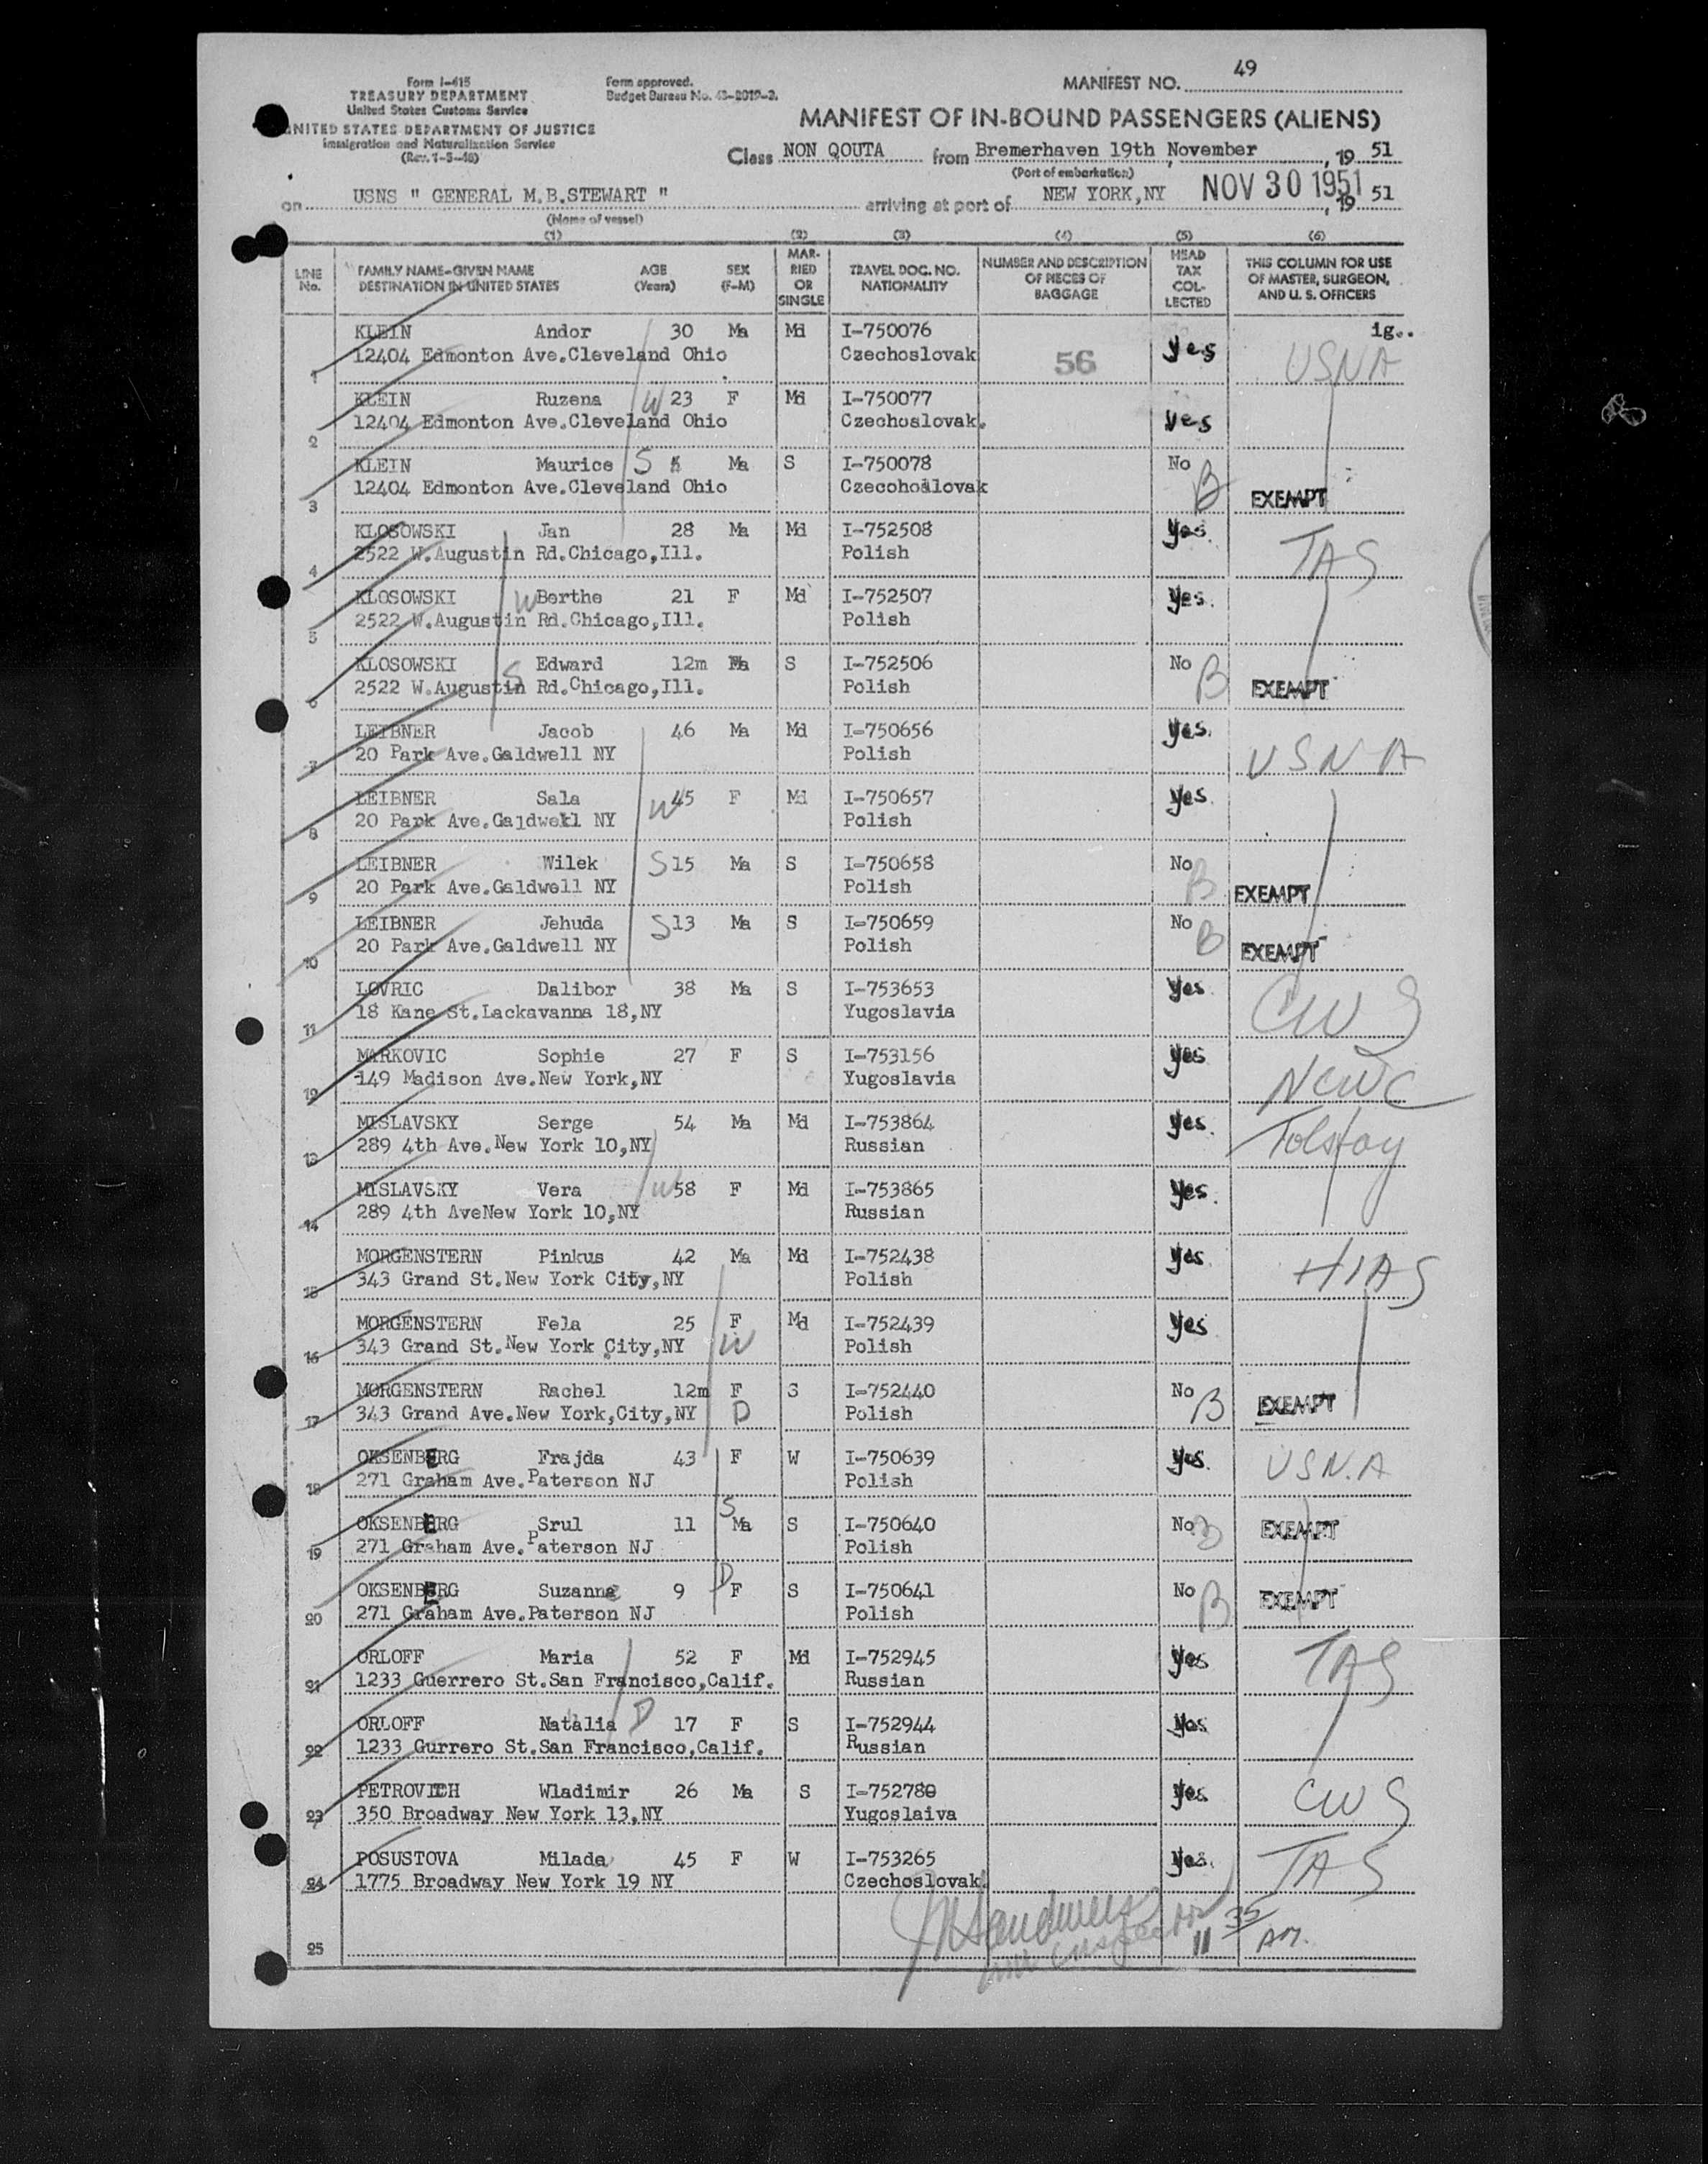 Form I-415
TREASURY DEPARTMENT
United States Customs Service
UNITED STATES DEPARTMENT OF JUSTICE
Immigration and Naturalization Service
(Rev. 1-5-48)
Form approved.
Budget Bureau No. 43-2019-2.
MANIFEST NO. 49
MANIFEST OF IN-BOUND PASSENGERS (ALIENS)
Class NON QOUTA from Bremerhaven 19th November, 19 51
(Port of embarkation)
on USNS " GENERAL M.B.STEWART " arriving at port of NEW YORK,NY NOV 30 1951, 19 51
(Name of vessel)
(1) (2) (3) (4) (5) (6)
LINE No. FAMILY NAME-GIVEN NAME DESTINATION IN UNITED STATES AGE (Years) SEX (F-M) MARRIED OR SINGLE TRAVEL DOC. NO. NATIONALITY NUMBER AND DESCRIPTION OF PIECES OF BAGGAGE HEAD TAX COLLECTED THIS COLUMN FOR USE OF MASTER, SURGEON, AND U. S. OFFICERS
KLEIN Andor 30 Ma Md I-750076 Yes ig..
1 12404 Edmonton Ave.Cleveland Ohio Czechoslovak 56 USNA
KLEIN Ruzena W 23 F Md I-750077
2 12404 Edmonton Ave.Cleveland Ohio Czechoslovak. Yes
KLEIN Maurice S Ma S I-750078 No
3 12404 Edmonton Ave.Cleveland Ohio Czecohoslovak B EXEMPT
KLOSOWSKI Jan 28 Ma Md I-752508 Yes.
4 2522 W.Augustin Rd.Chicago,Ill. Polish TAS
KLOSOWSKI W Berthe 21 F Md I-752507 Yes.
5 2522 W.Augustin Rd.Chicago,Ill. Polish
KLOSOWSKI Edward 12m Ma S I-752506 No
6 2522 W.Augustin S Rd.Chicago,Ill. Polish B EXEMPT
LEIBNER Jacob 46 Ma Md I-750656 Yes.
7 20 Park Ave.Galdwell NY Polish USNA
LEIBNER Sala W 45 F Md I-750657 Yes.
8 20 Park Ave.Galdwell NY Polish
LEIBNER Wilek S 15 Ma S I-750658 No
9 20 Park Ave.Galdwell NY Polish B EXEMPT
LEIBNER Jehuda S 13 Ma S I-750659 No
10 20 Park Ave.Galdwell NY Polish B EXEMPT
LOVRIC Dalibor 38 Ma S I-753653 Yes.
11 18 Kane St.Lackavanna 18,NY Yugoslavia CWS
MARKOVIC Sophie 27 F S I-753156 Yes.
12 149 Madison Ave.New York,NY Yugoslavia NCWC
MISLAVSKY Serge 54 Ma Md I-753864 Yes.
13 289 4th Ave.New York 10,NY Russian Tolstoy
MISLAVSKY Vera W 58 F Md I-753865 Yes.
14 289 4th AveNew York 10,NY Russian
MORGENSTERN Pinkus 42 Ma Md I-752438 Yes
15 343 Grand St.New York City,NY Polish HIAS
MORGENSTERN Fela 25 F Md I-752439 Yes
16 343 Grand St.New York City,NY W Polish
MORGENSTERN Rachel 12m F S I-752440 No
17 343 Grand Ave.New York,City,NY D Polish B EXEMPT
OKSENBERG Frajda 43 F W I-750639 Yes. USN.A
18 271 Graham Ave.Paterson NJ Polish
OKSENBERG Srul 11 S Ma S I-750640 No B EXEMPT
19 271 Graham Ave.Paterson NJ Polish
OKSENBERG Suzanne 9 D F S I-750641 No
20 271 Graham Ave.Paterson NJ Polish B EXEMPT
ORLOFF Maria 52 F Md I-752945 Yes TAS
21 1233 Guerrero St.San Francisco,Calif. Russian
ORLOFF Natalia D 17 F S I-752944 Yes
22 1233 Gurrero St.San Francisco,Calif. Russian
PETROVICH Wladimir 26 Ma S I-752780 Yes
23 350 Broadway New York 13,NY Yugoslaiva CWS
POSUSTOVA Milada 45 F W I-753265 Yes.
24 1775 Broadway New York 19 NY Czechoslovak. TAS
Inspector 11 35 AM.
25